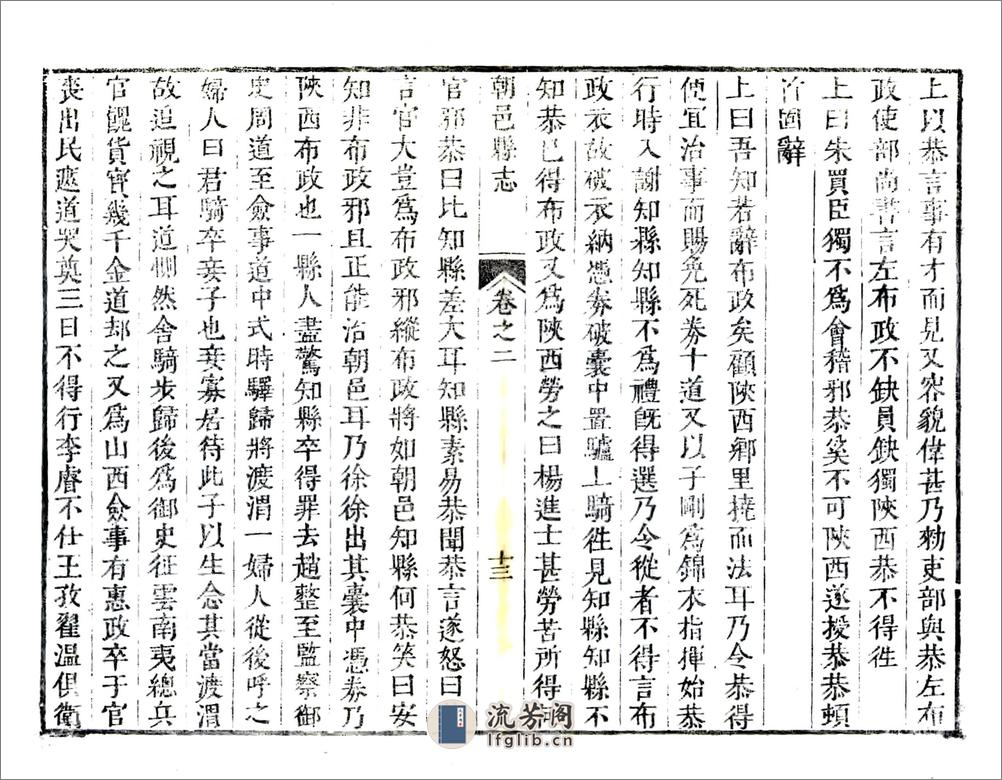 上以恭言事有才而見又容貌偉甚乃勑吏部與恭左布
政使部尚書言左布政不缺員缺獨陝西恭不得徃
上曰朱買臣獨不爲會稽邪恭奚不可陝西遂授恭恭頓
首固辭
上曰吾知若辭布政矣顧陝西鄉里撓而法耳乃令恭得
便宜治事而賜免死券十道又以子剛爲錦衣指揮始恭
行時入謝知縣知縣不爲禮旣得選乃令從者不得言布
政衣故破衣納憑券破囊中置驢上騎徃見知縣知縣不
知恭已得布政又爲陝西勞之曰楊進士甚勞苦所得何
朝邑縣志
卷之二
十三
官邪恭曰比知縣差大耳知縣素易恭聞恭言遂怒曰
言官大豈爲布政邪縱布政將如朝邑知縣何恭笑曰安
知非布政邪且正能治朝邑耳乃徐徐出其囊中憑券乃
陝西布政也一縣人盡驚知縣卒得罪去趙整至監察御
史周道至僉事道中式時驛歸將渡渭一婦人從後呼之
婦人曰君騎卒妾子也妾寡居待此子以生念其當渡渭
故追視之耳道惻然舍騎步歸後爲御史徃雲南夷總兵
官餽貨寳幾千金道却之又爲山西僉事有惠政卒于官
喪出民遮道哭奠三日不得行李睿不仕王孜翟溫俱衛
流芳阁
lfglib.cn